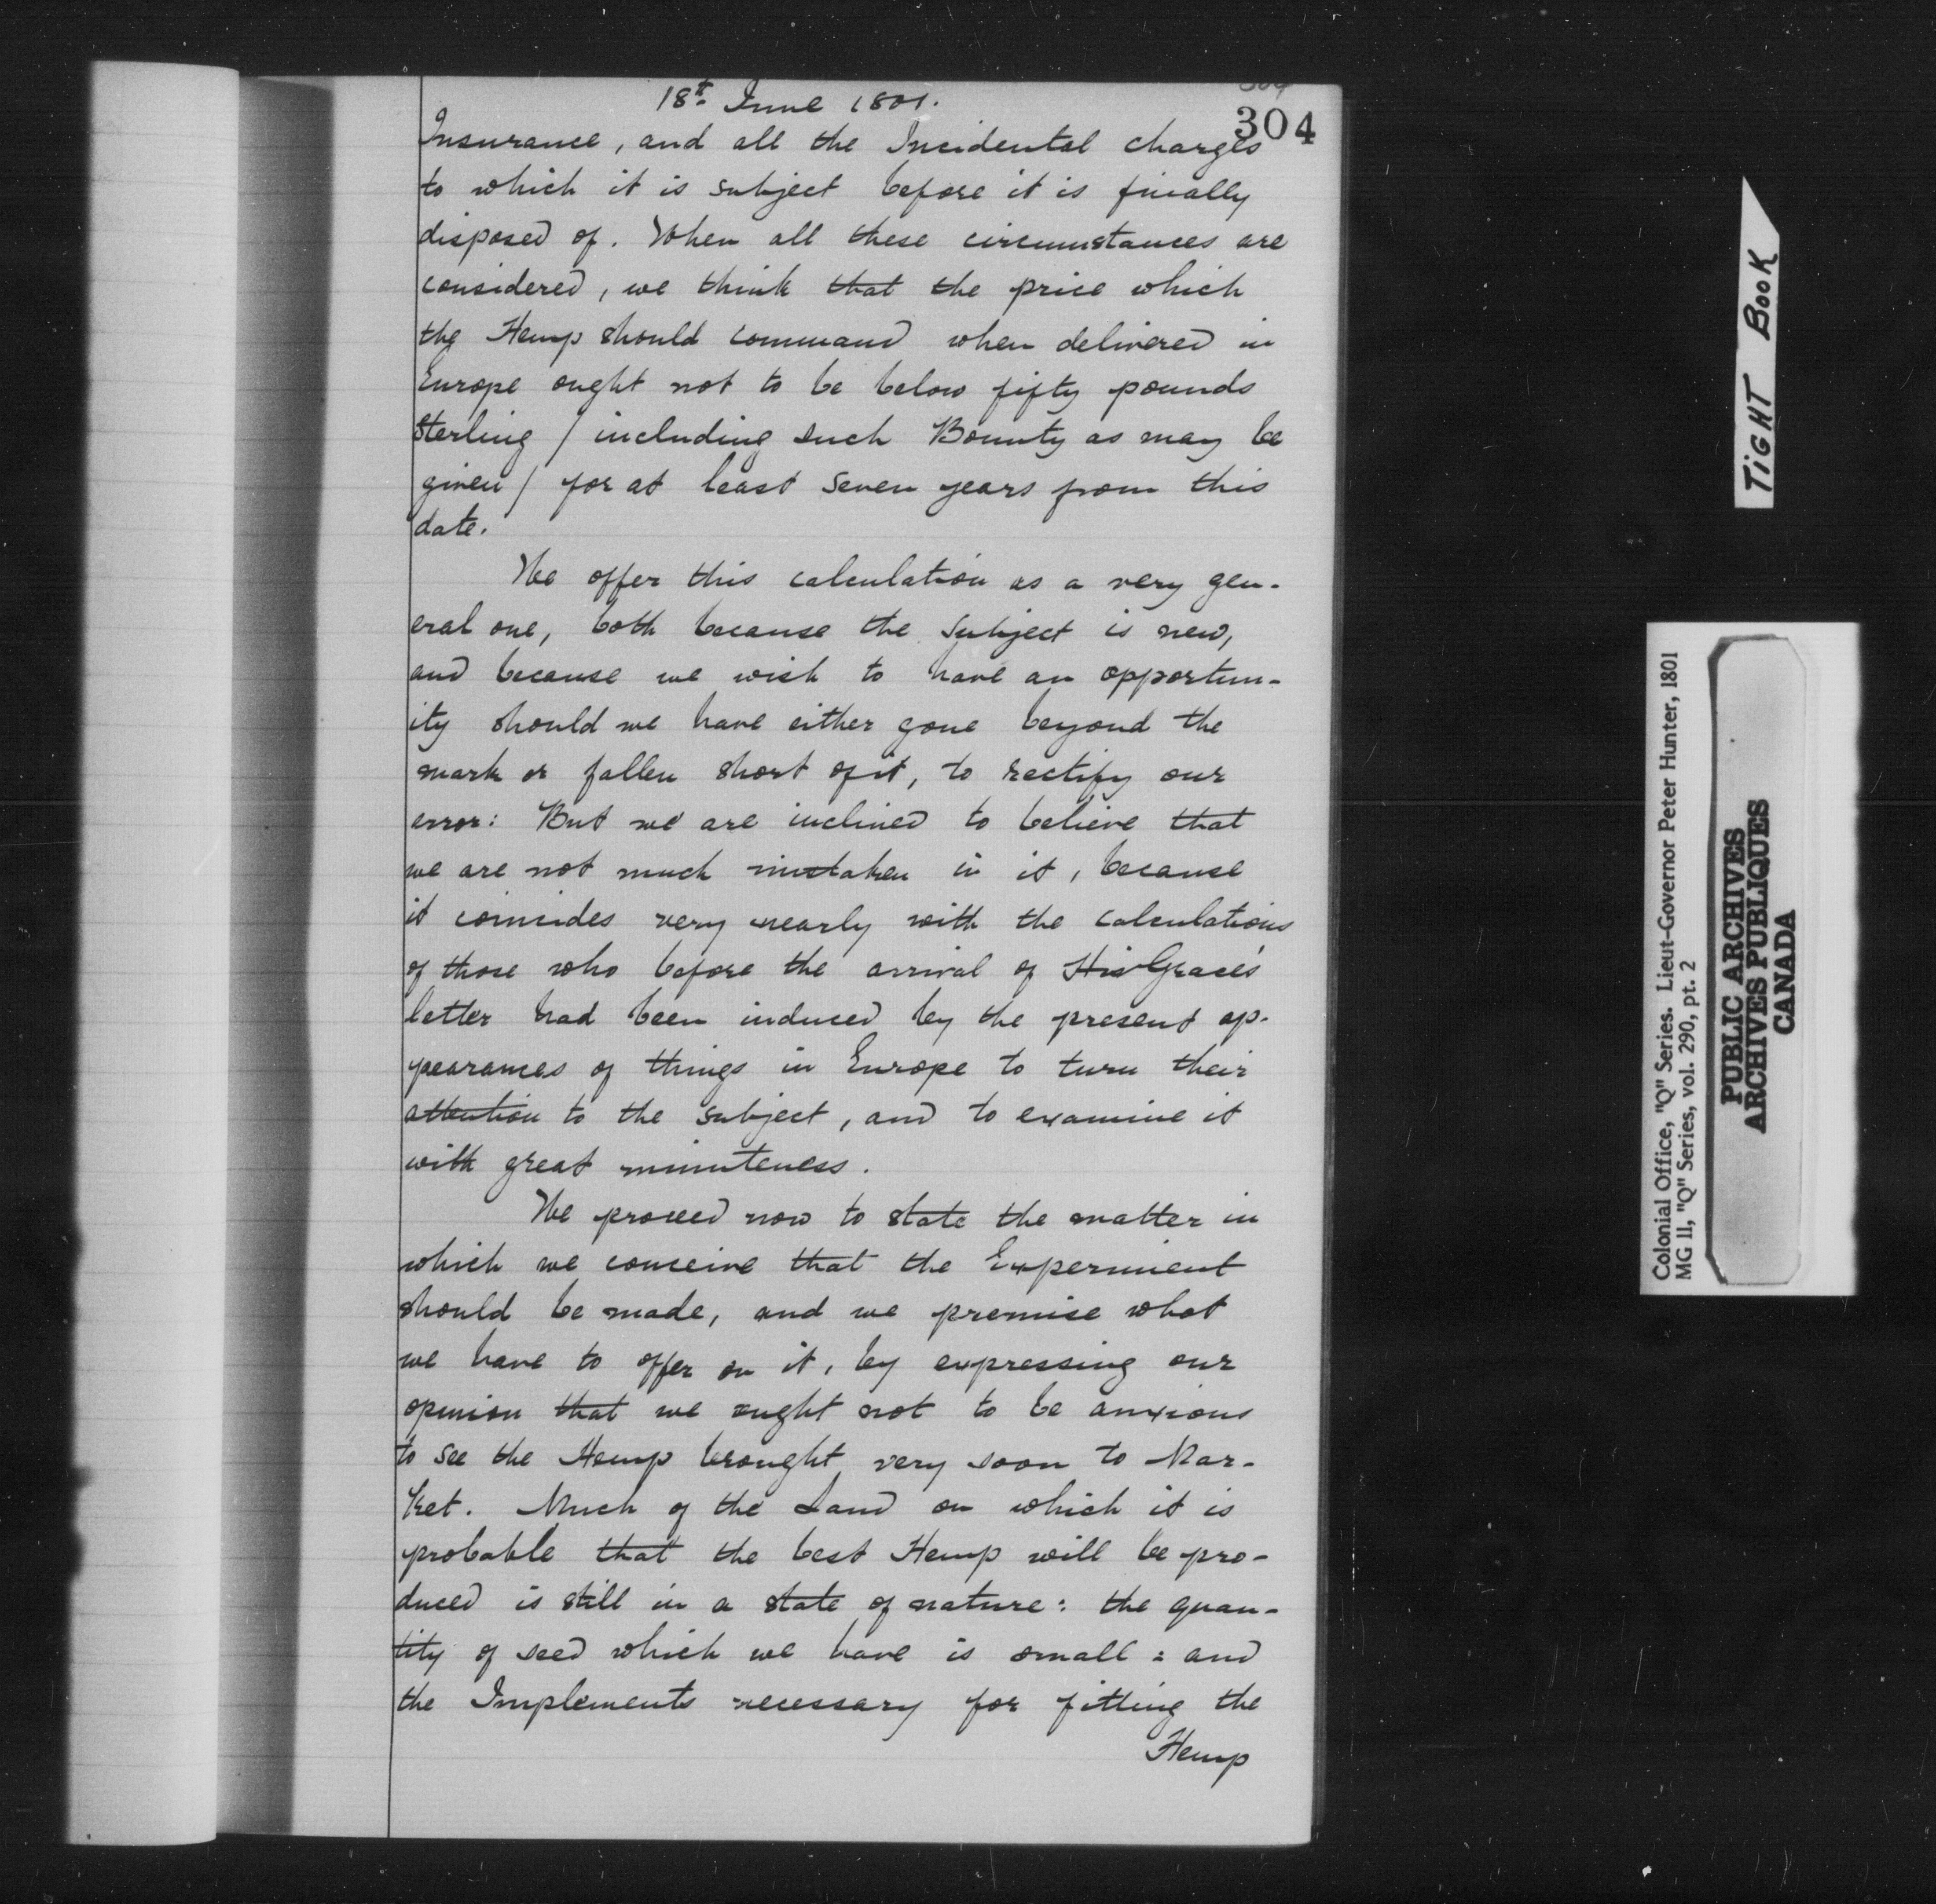 18th June 1801.
304
Insurance, and all the Incidental charges
to which it is subject before it is finally
disposed of. When all these circumstances are
considered, we think that the price which
the Hemp should command when delivered in
Europe ought not to be below fifty pounds
Sterling / including such Bounty as may be
given / for at least seven years from this
date.
We offer this calculation as a very gen-
eral one, both because the subject is new,
and because we wish to have an opportun-
ity should we have either gone beyond the
mark or fallen short of it, to rectify our
error: But we are inclined to believe that
we are not much mistaken in it, because
it coincides very nearly with the calculations
of those who before the arrival of His Grace's
letter had been induced by the present ap-
pearances of things in Europe to turn their
attention to the subject, and to examine it
with great minuteness.
We proceed now to state the matter in
which we conceive that the Experiment
should be made, and we premise what
we have to offer on it, by expressing our
opinion that we ought not to be anxious
to see the Hemp brought very soon to Mar-
ket. Much of the Land on which it is
probable that the best Hemp will be pro-
duced is still in a state of nature: the quan-
tity of seed which we have is small: and
the Implements necessary for fitting the
Hemp
TIGHT BOOK
Colonial Office, "Q" Series. Lieut-Governor Peter Hunter, 1801
MG 11, "Q" Series, vol. 290, pt. 2
PUBLIC ARCHIVES
ARCHIVES PUBLIQUES
CANADA